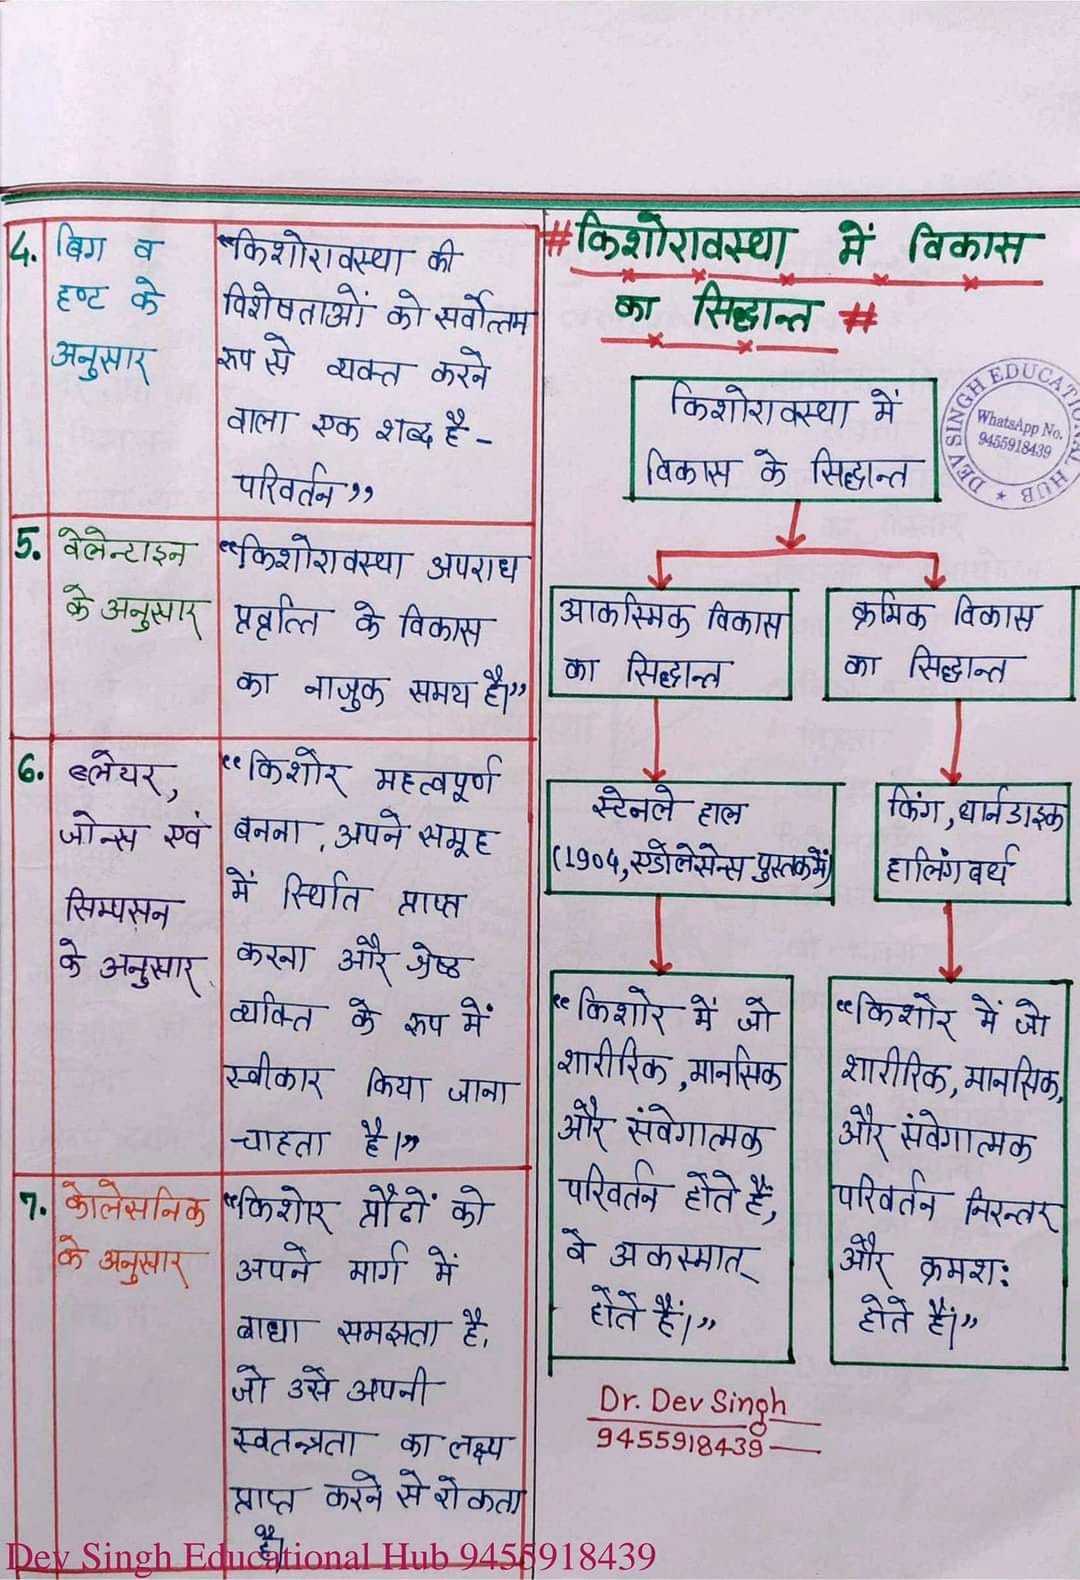 4.
बिग व
हण्ट के
अनुसार
“किशोरावस्था की
विशेषताओं को सर्वोत्तम
रूप से व्यक्त करने
वाला एक शब्द है -
परिवर्तन”
5.
वेलेन्टाइन
के अनुसार
“किशोरावस्था अपराध
प्रवृत्ति के विकास
का नाजुक समय है।”
6.
ब्लेयर,
जोन्स एवं
सिम्पसन
के अनुसार
“किशोर महत्वपूर्ण
बनना, अपने समूह
में स्थिति प्राप्त
करना और श्रेष्ठ
व्यक्ति के रूप में
स्वीकार किया जाना
चाहता है।”
7.
कोलेसनिक
के अनुसार
“किशोर प्रौढों को
अपने मार्ग में
बाधा समझता है,
जो उसे अपनी
स्वतन्त्रता का लक्ष्य
प्राप्त करने से रोकता
है।
# किशोरावस्था में विकास
का सिद्धान्त #
किशोरावस्था में
विकास के सिद्धान्त
DEV SINGH EDUCATIONAL HUB
WhatsApp No.
9455918439
आकस्मिक विकास
का सिद्धान्त
क्रमिक विकास
का सिद्धान्त
स्टेनले हाल
(1904, एडोलेसेन्स पुस्तक में)
किंग, थार्नडाइक
हालिंगवर्थ
“किशोर में जो
शारीरिक, मानसिक
और संवेगात्मक
परिवर्तन होते हैं,
वे अकस्मात्
होते हैं।”
“किशोर में जो
शारीरिक, मानसिक,
और संवेगात्मक
परिवर्तन निरन्तर
और क्रमशः
होते हैं।”
Dr. Dev Singh
9455918439
Dev Singh Educational Hub 9455918439